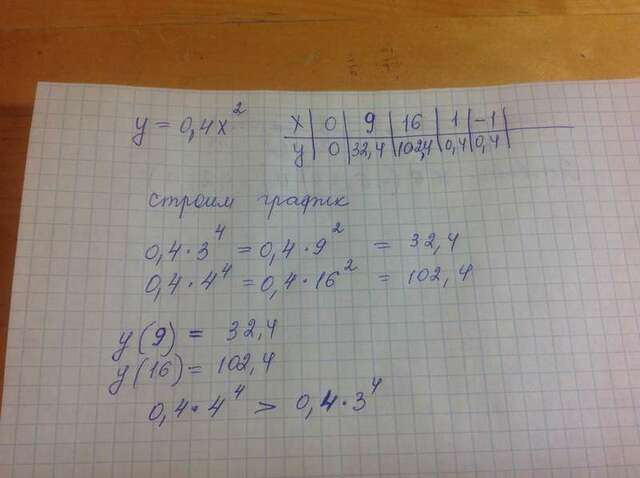 y = 0,4x²
x | 0 | 9 | 16 | 1 | -1 |
y | 0 | 32,4 | 102,4 | 0,4 | 0,4 |
строим график
0,4·3⁴ = 0,4·9² = 32,4
0,4·4⁴ = 0,4·16² = 102,4
y(9) = 32,4
y(16) = 102,4
0,4·4⁴ > 0,4·3⁴